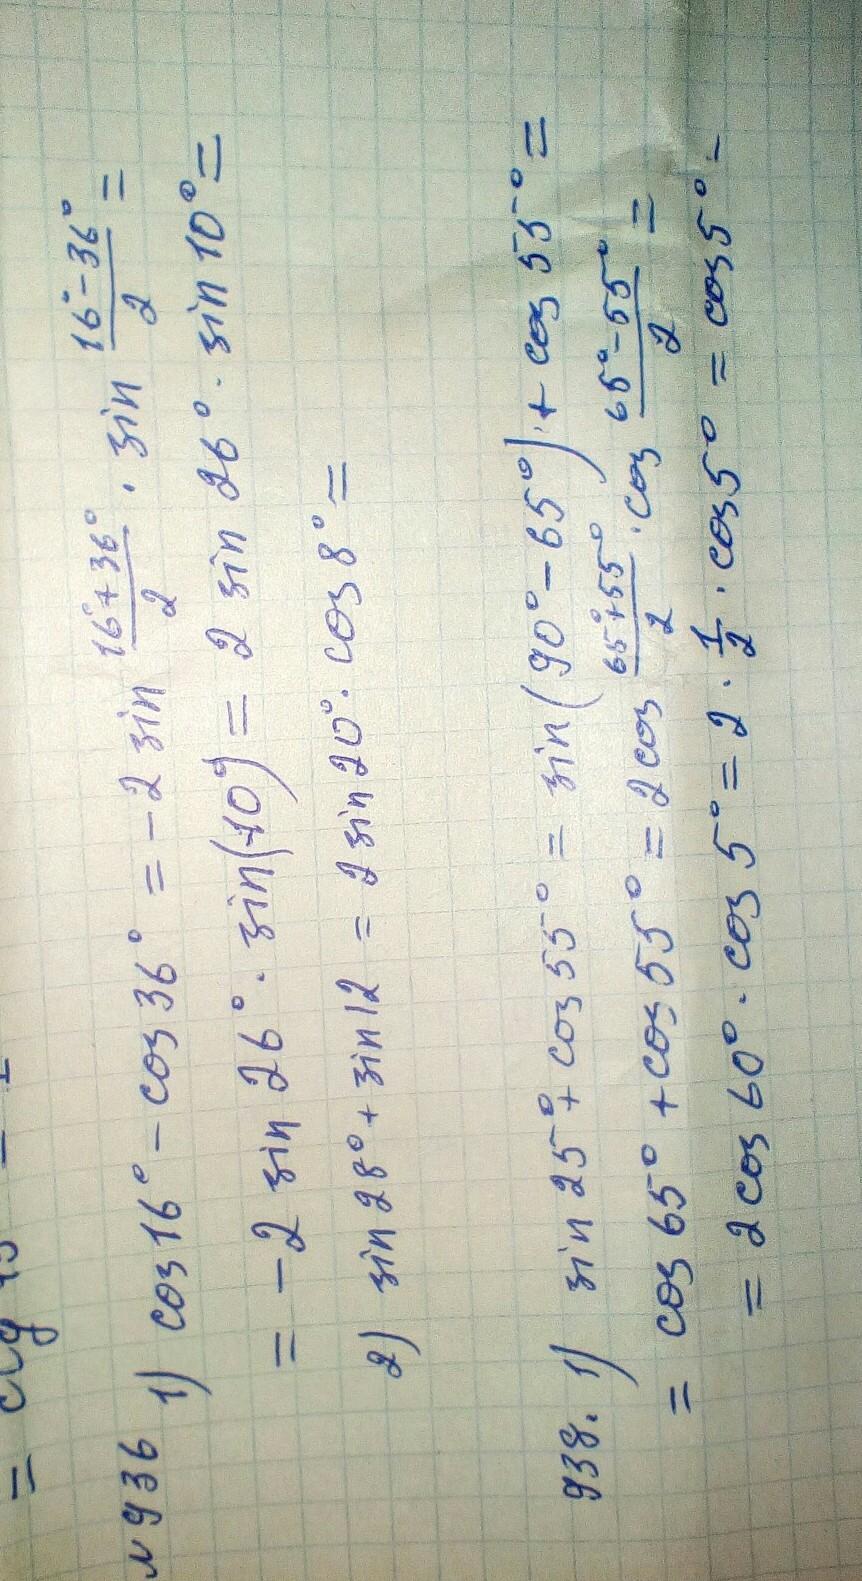 №936 1) cos16° - cos36° = -2 sin (16°+36°)/2 · sin (16°-36°)/2 =
= -2 sin 26° · sin(-10°) = 2 sin 26° · sin 10° =
2) sin 28° + sin 12 = 2 sin 20° · cos 8° =
938. 1) sin 25° + cos 55° = sin(90° - 65°) + cos 55° =
= cos 65° + cos 55° = 2cos (65°+55°)/2 · cos (65°-55°)/2 =
= 2cos 60° · cos 5° = 2 · 1/2 · cos 5° = cos 5° -